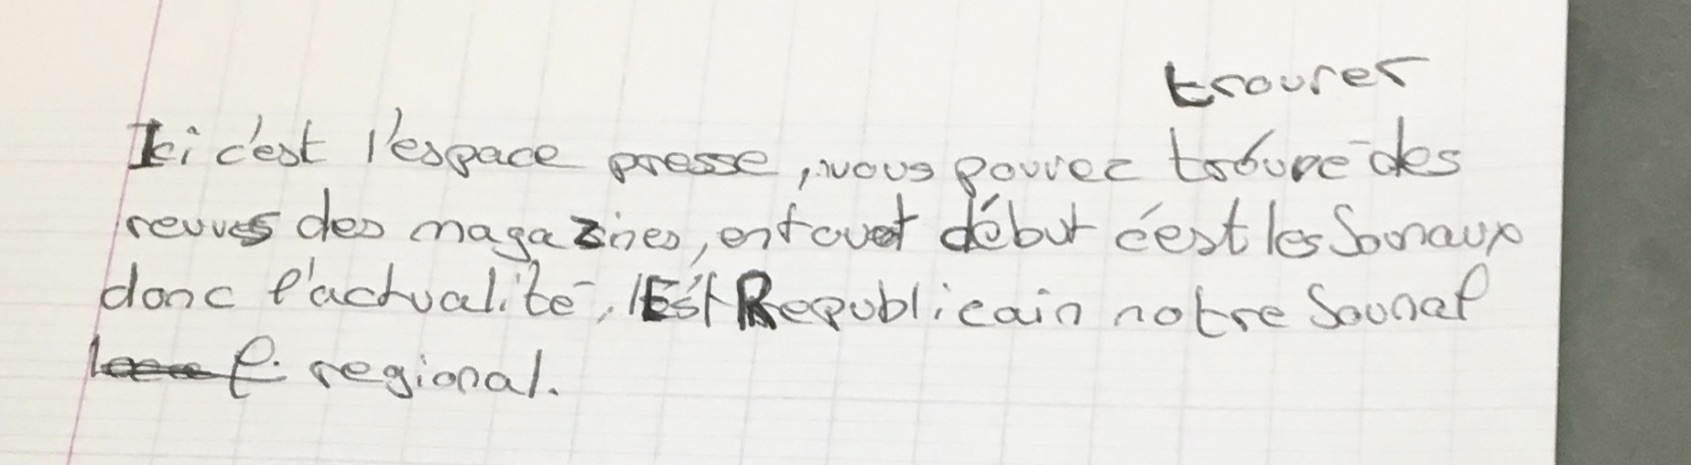 trouver
Ici c'est l'espace presse, vous pouvez trouvé des
revues des magazines, entouot début c'est les Jounaux
donc l'actualité, l'Est Republicain notre Jounal
regional.